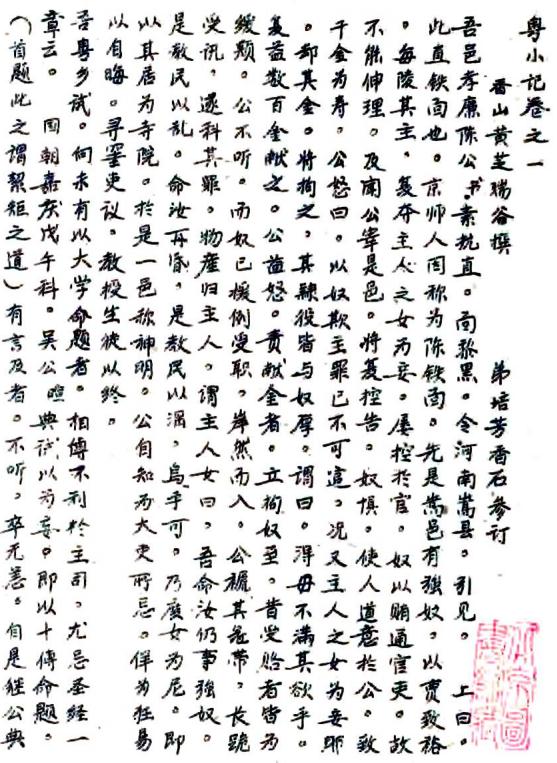 粤小记卷之一
香山黄芝瑞谷撰 弟培芳香石参订
吾邑孝廉陈公书。素抗直。面黎黑。令河南嵩县。引见。 上曰。
此直铁面也。京师人因称为陈铁面。先是嵩邑有强奴。以賣致裕
。每陵其主。复夺主人之女为妾。屡控於官。奴以賄通官吏。故
不能伸理。及闻公宰是邑。将复控告。奴惧。使人道意於公。致
千金为寿。公怒曰。以奴欺主罪已不可逭。况又主人之女为妾耶
。却其金。将拘之。其隶役皆与奴厚。谓曰。得毋不满其欲乎。
复益数百金献之。公益怒。责献金者。立拘奴至。昔受贻者皆为
缓颊。公不听。而奴已援例受职。岸然而入。公褫其冠带。长跪
受讯。遂科其罪。物産归主人。谓主人女曰。吾命汝仍事强奴。
是教民以乱。命汝再昏。是教民以淫。烏乎可。乃度女为尼。即
以其居为寺院。於是一邑称神明。公自知为大吏所忌。佯为狂易
以自晦。寻罣吏议。教授生徒以终。
吾粤乡试。向未有以大学命题者。相傅不利於主司。尤忌圣经一
章云。 国朝嘉庆戊午科。吴公 典试以为妄。即以十傅命题。
（首题此之谓絜矩之道）有言及者。不听。卒无恙。自是继公典